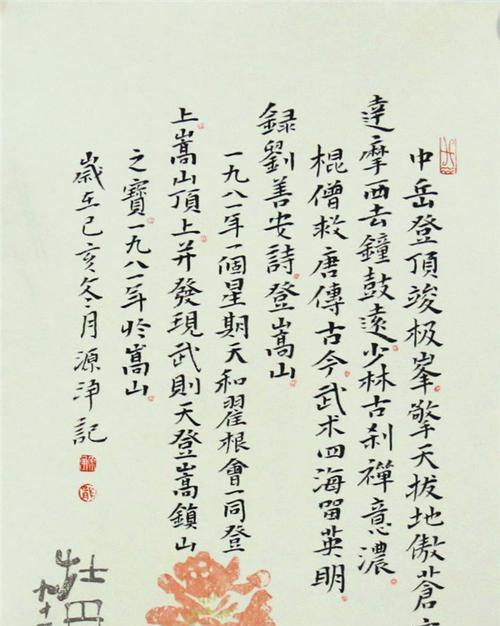 中岳登頂竣极峯擎天拔地傲蒼
達摩西去鐘鼓遠少林古刹禪意濃
棍僧救唐傳古今武术四海留英明
録劉善安詩登嵩山
一九八一年一個星期天和翟根會一同登
上嵩山頂上并發現武則天登嵩鎮山
之寶一九八一年於嵩山
歲在己亥冬月源淨記
牡丹